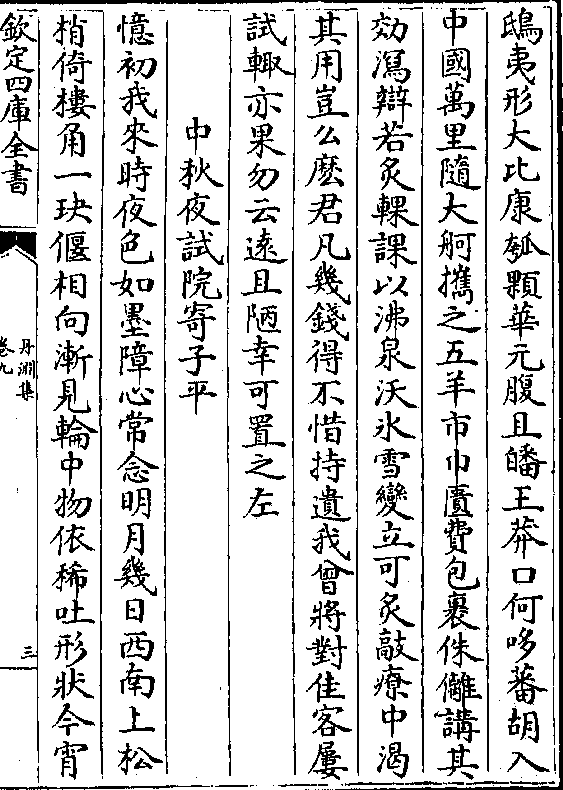 鴟夷形大比康瓠顆華元腹且皤王莽口何哆蕃胡入
中國萬里隨大舸攜之五羊市巾匱費包裹侏離講其
効瀉辯若炙輠課以沸泉沃氷雪變立可炙敲療中渴
其用豈么麽君凡幾錢得不惜持遺我曾將對佳客屢
試輙亦果勿云逺且陋幸可置之左
中秋夜試院寄子平
憶初我來時夜色如墨障心常念明月幾日西南上松
梢倚樓角一玦偃相向漸見輪中物依稀吐形狀今宵
欽定四庫全書
丹淵集
卷九
三